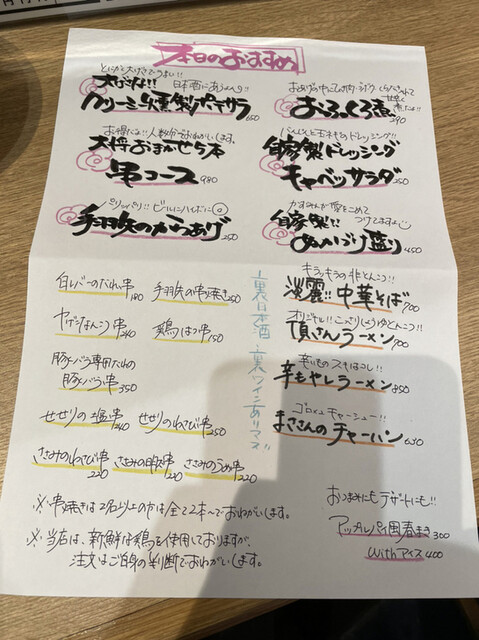 本日のおすすめ
とにかく大げさでうまい!!
大げさな!! 日本酒にあう〜!!
クリーミー燻製ポテサラ 650
お得だよ!! 人数分でおねがいします。
大将おまかせ5本
串コース 980
パリッパリ!! ビールにハイボールに
手羽先のからあげ 250
おふくろ煮 290
にんじんと玉ネギのドレッシング!!
自家製ドレッシング
キャベツサラダ 250
かすみさんが愛をこめて
つけてますよ
自家製!!
ぬかづけ盛り 450
白レバーのたれ串 180
手羽先の串焼き 250
ヤゲンなんこつ串 240
鶏はつ串 150
豚バラ専用たれの
豚バラ串 350
せせりの塩串 240
せせりのわさび串 250
ささみのわさび串 220
ささみの明太串 220
ささみのうめ串 220
↑裏日本酒
↓裏ワインありマス!!
キラッキラの非とんこつ!!
淡麗!! 中華そば 700
オリジナル!! こってりしょうゆとんこつ!!
頂さんラーメン 700
辛いものスキはコレ!!
辛モヤしラーメン 850
ゴロゴロチャーシュー!!
まささんのチャーハン 650
おつまみにもデザートにも!!
アップルパイ風春まき 300
withアイス 400
※串焼きは2名以上の方は全て2本〜でおねがいします。
※当店は、新鮮な鶏を使用しておりますが、
注文はご自身の判断でおねがいします。